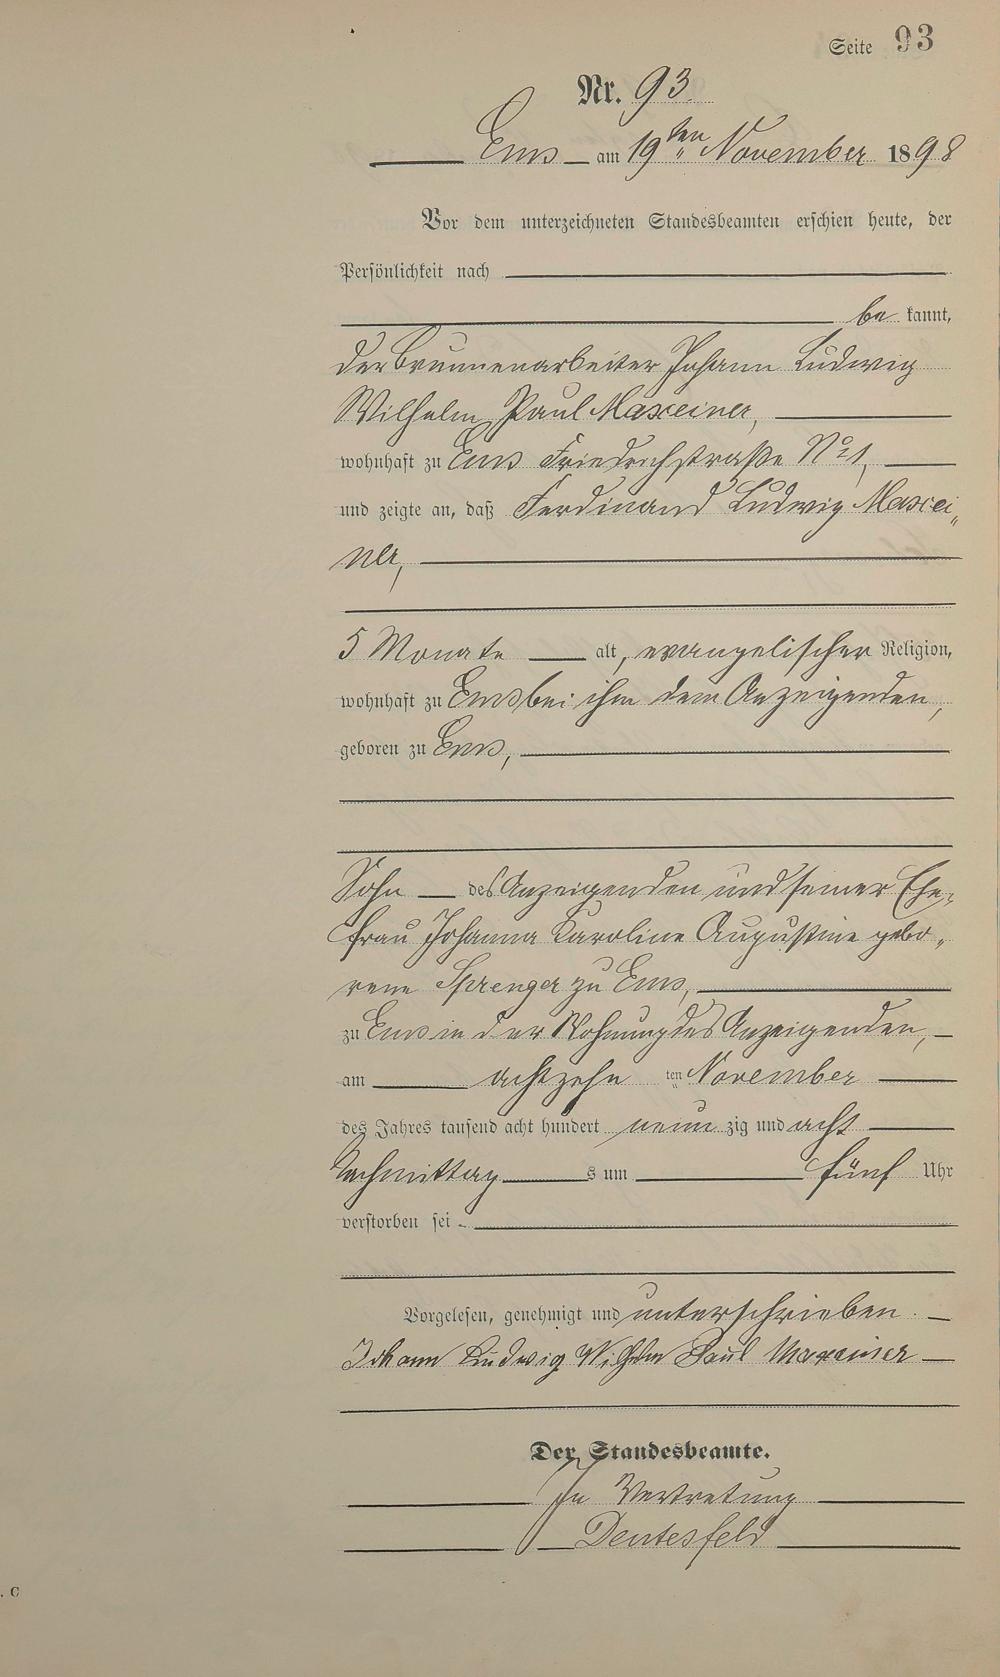 Seite 93
Nr. 93.
Ems am 19ten November 1898
Vor dem unterzeichneten Standesbeamten erschien heute, der
Persönlichkeit nach
be kannt,
der Brunnenarbeiter Johann Ludwig
Wilhelm Paul Maxeiner,
wohnhaft zu Ems Friedrichstraße No 1,
und zeigte an, daß Ferdinand Ludwig Maxei„
ner,
5 Monate alt, evangelischer Religion,
wohnhaft zu Ems bei ihm dem Anzeigenden,
geboren zu Ems,
Sohn des Anzeigenden und seiner Ehe„
frau Johanna Karoline Augustine gebo„
rene Sprenger zu Ems,
zu Ems in der Wohnung des Anzeigenden,
am achtzehn ten November
des Jahres tausend acht hundert neun zig und acht
Nachmittag s um fünf Uhr
verstorben sei
Vorgelesen, genehmigt und unterschrieben.
Johann Ludwig Wilhelm Paul Maxeiner
Der Standesbeamte.
In Vertretung
. C